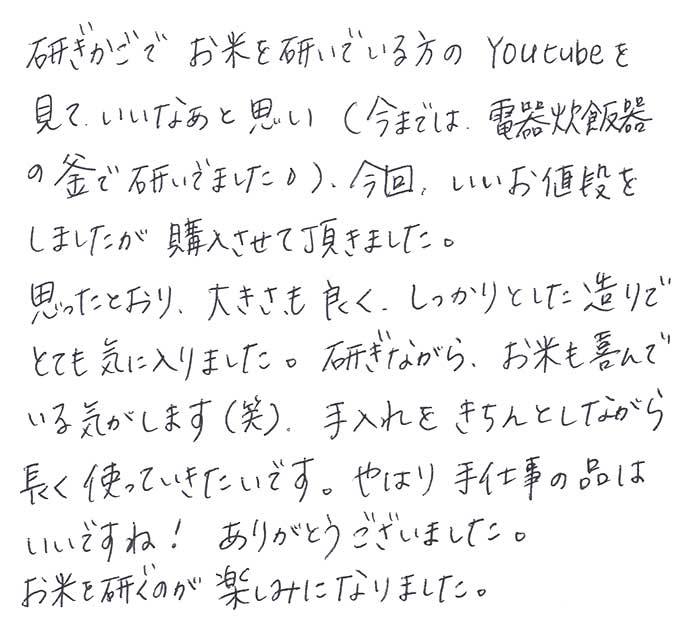 研ぎかごで お米を研いでいる方の Youtubeを
見て、いいなぁと思い (今までは、電器炊飯器
の釜で研いでました💧)、今回、いいお値段を
しましたが 購入させて頂きました。
思ったとおり、大きさも良く、しっかりとした造りで
とても気に入りました。研ぎながら、お米も喜んで
いる気がします(笑)、手入れをきちんとしながら
長く使っていきたいです。やはり手仕事の品は
いいですね! ありがとうございました。
お米を研ぐのが楽しみになりました。